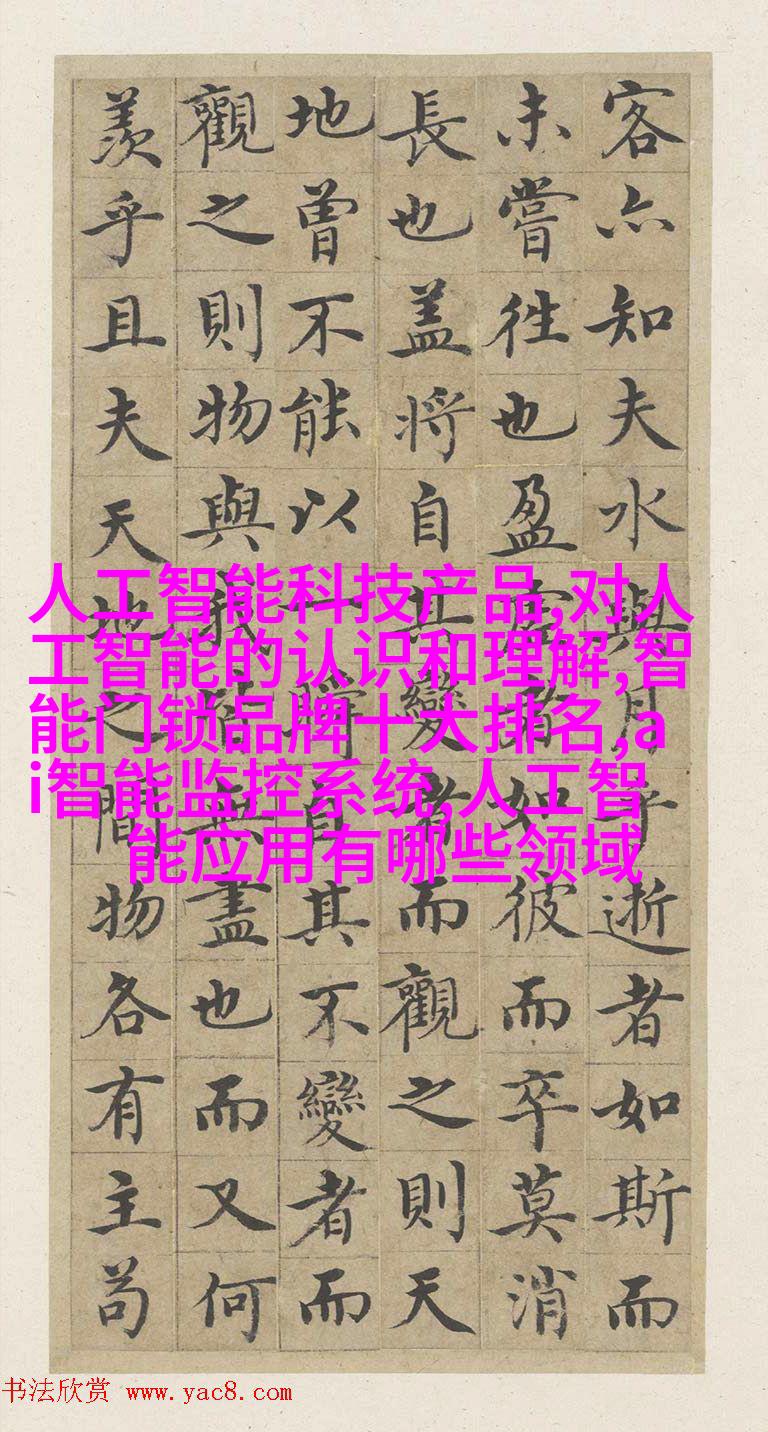 客亦知夫水與月乎逝者如斯而
未嘗往也盈虛者如彼而卒莫消
長也盖將自其變者而觀之則天
地曾不能以一瞬自其不變者而
觀之則物與我皆無盡也而又何
羨乎且夫天地之間物各有主苟
人工智能科技产品,对人
工智能的认识和理解,智
能门锁品牌十大排名,a
i智能监控系统,人工智
能应用有哪些领域
书法欣赏 www.yac8.com